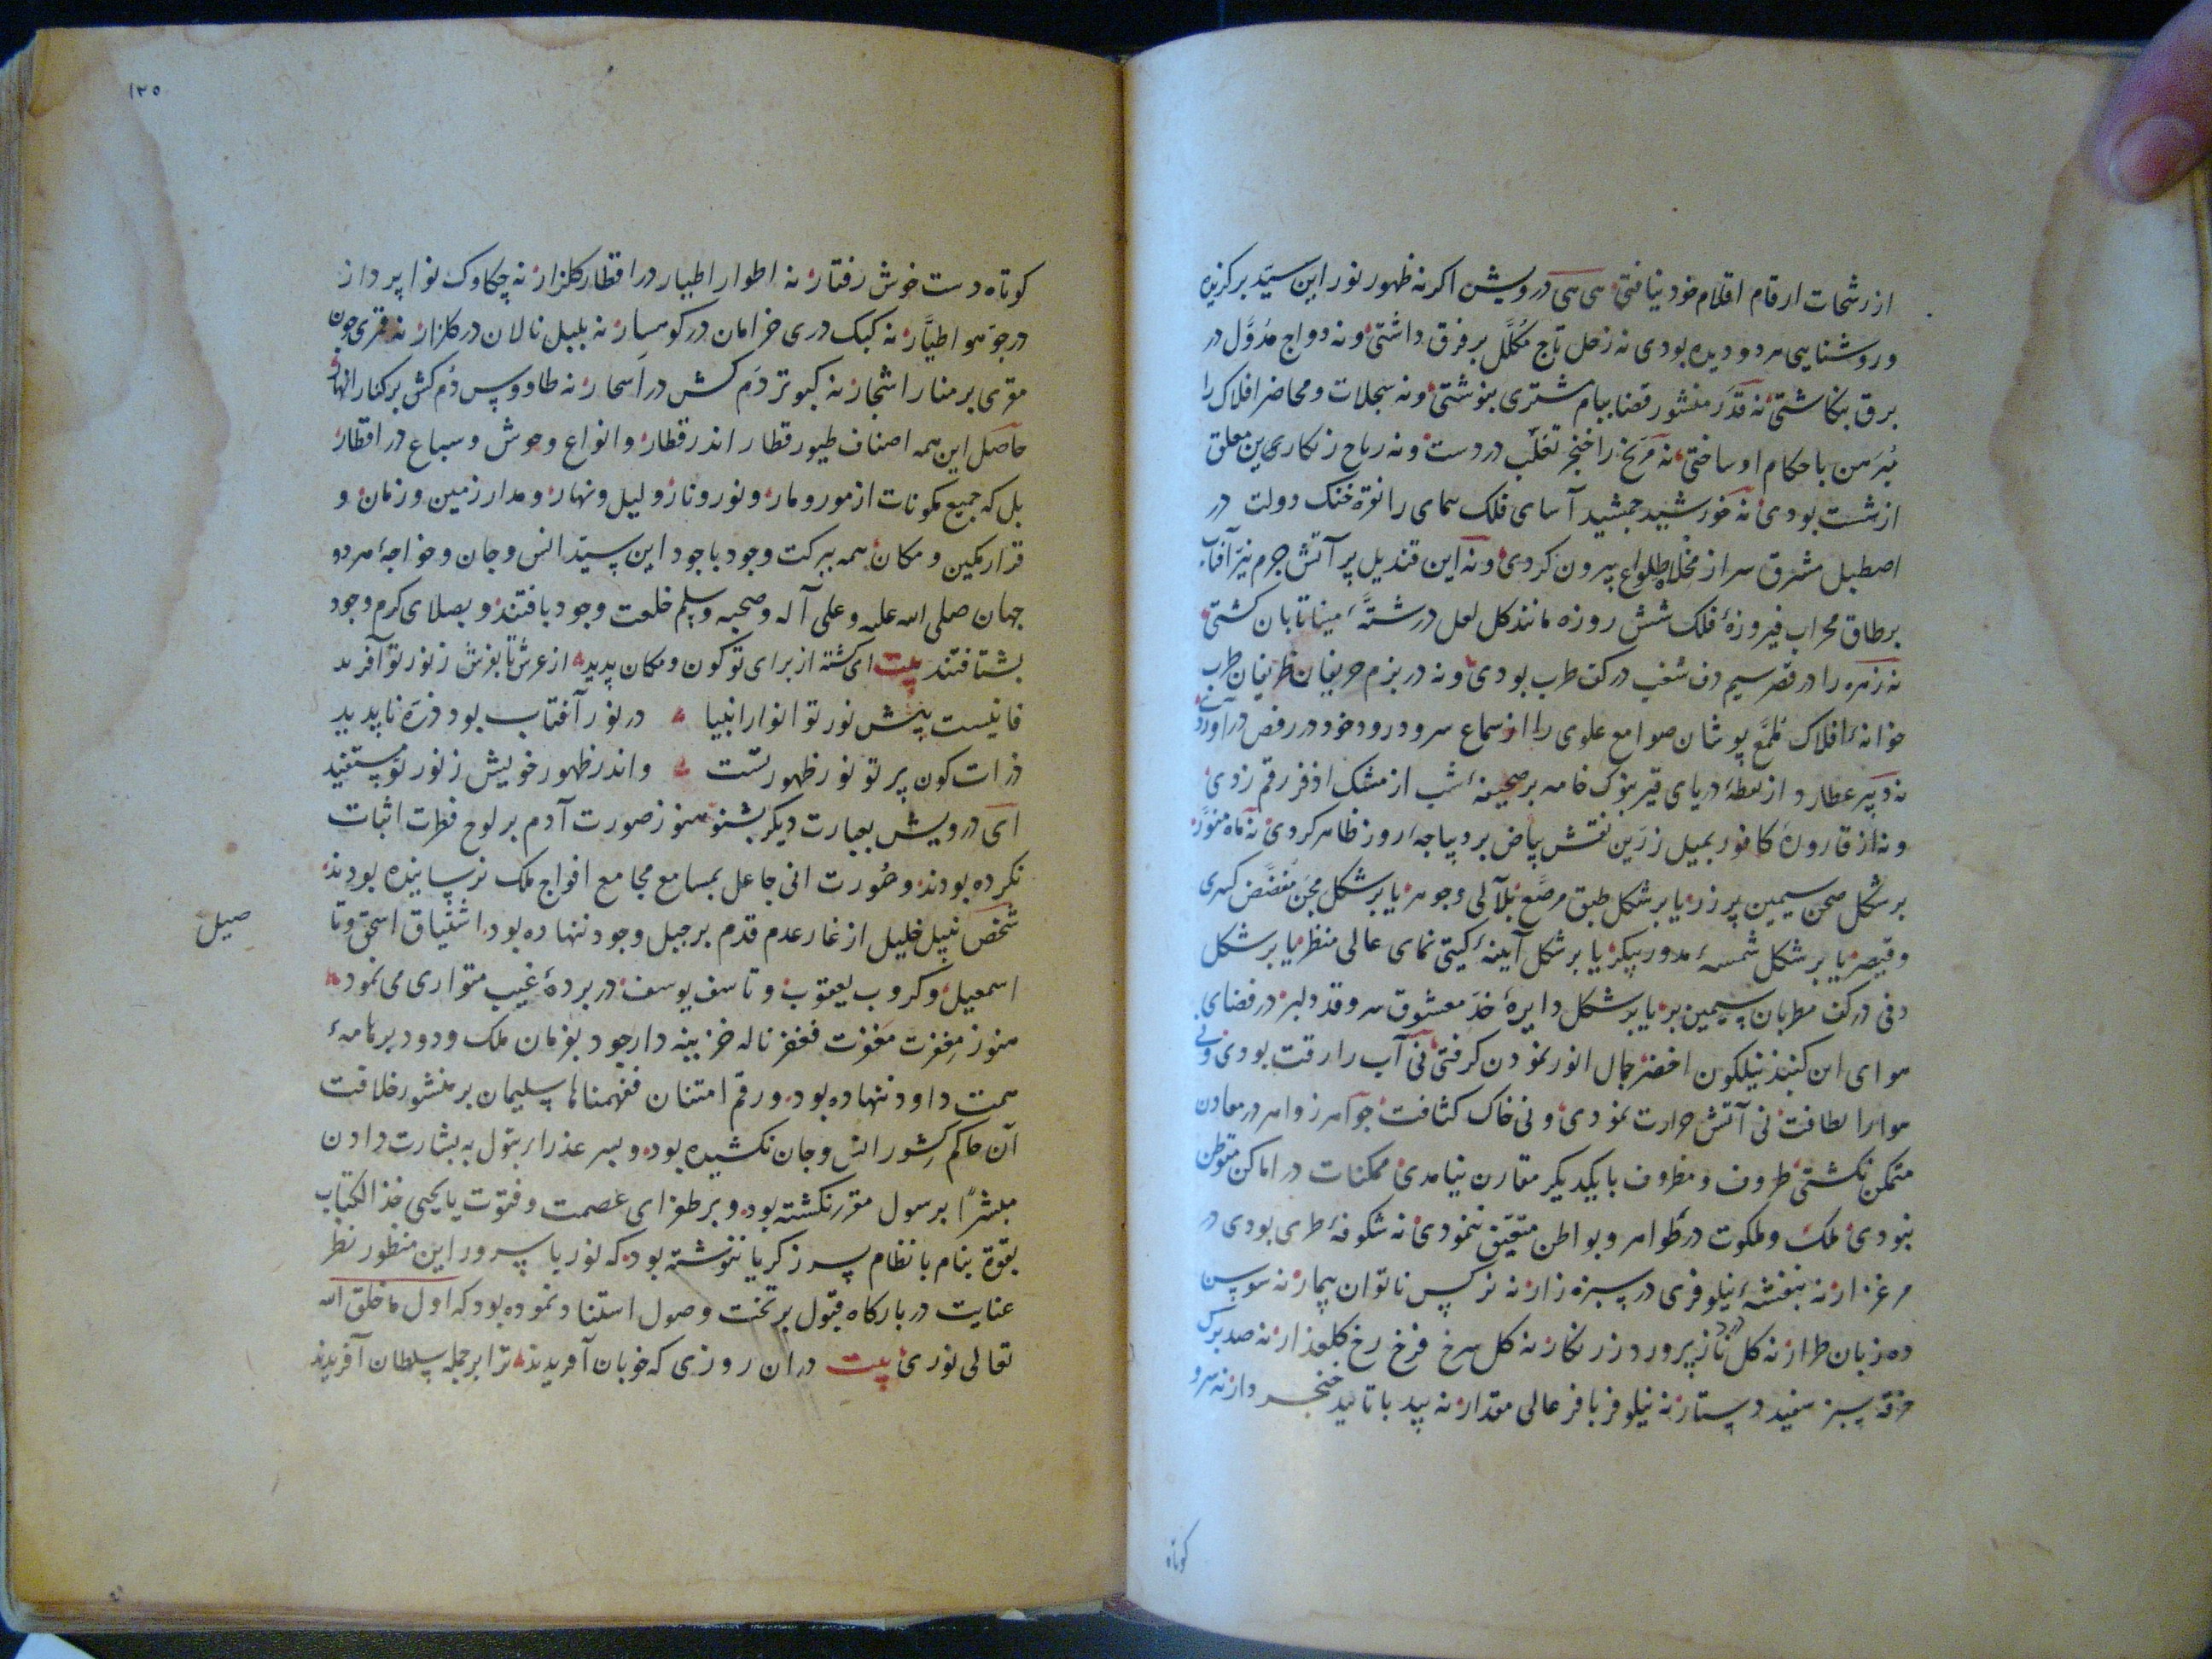 از رشحات ارقام اقلام خود نیافتی هی هی درویش اکر نه ظهور نور این سید برکزیده
و روشنایی هر دو دیده بودی نه زحل تاج مکلل بر فرق داشتی و نه دواج مدول در
برق بنکاشتی نه قدر منشور قضا بنام مشتری بنوشتی و نه سجلات و محاضر افلاک را
مبرهن باحکام او ساختی نه مریخ را خنجر تغلب در دست و نه رماح زنکاری معلق
از شست بودی نه خورشید جمشید آسای فلک سمای را نقره خنک دولت در
اصطبل مشرق سر از مخلاه طلوع بیرون کردی و نه این قندیل پر آتش جرم نیر آفتاب
بر طاق محراب فیروزهٔ فلک شش روزه مانند کل لعل در رشتهٔ مینا تابان کشتی
نه زهره را در قصر سیم دف شغب در کف طرب بودی و نه در بزم حریفان ظریفان طرب
خوانهٔ افلاک ملمع پوشان صوامع علوی را از سماع سرود رود خود در رقص در آوردی
نه دبیر عطارد از نقطهٔ دریای قیر بنوک خامه بر صحیفهٔ شب از مشک اذفر رقم زدی
و نه از قارورهٔ کافور بمیل زرین نقش بیاض بر دیباجهٔ روز ظاهر کردی نه ماه منور
بر شکل صحن سیمین پر زر یا بر شکل طبق مرصع بلآلی و جوهر یا بر شکل مجن مفضض کسری
و قیصر یا بر شکل شمسهٔ مدور پیکر یا بر شکل آیینهٔ کیتی نمای عالی منظر یا بر شکل
دفی در کف مطربان سیمین بر یا بر شکل دایرهٔ خد معشوق سرو قد دلبر در فضای
هوای این کنبد نیلکون اخضر جمال انور نمودن کرفتی نی آب را رقت بودی و نی
هوا را لطافت نی آتش حرارت نمودی و نی خاک کثافت جواهر زواهر در معادن
متمکن نکشتی ظروف و مظروف با یکدیکر مقارن نیامدی ممکنات در اماکن متوطن
نبودی ملک و ملکوت در ظواهر و بواطن متعین ننمودی نه شکوفهٔ طری بودی در
مرغزار نه بنفشهٔ نیلوفری در سبزه زار نه نرکس ناتوان بیمار نه سوسن
ده زبان طرار نه کل ناز پرورد زرنکار نه کل سرخ فرخ رخ کلعذار نه صد برک
خرقه سبز سفید دستار نه نیلوفر با فر عالی مقدار نه بید با تایید خنجر دار نه سرو
کوتاه
۱۲۵
کوتاه دست خوش رفتار نه اطوار اطیار در اقطار کلزار نه چکاوک نوا پرداز
در جو هوا طیار نه کبک دری خرامان در کوهسار نه بلبل نالان در کلزار نه قمری چون
مقری بر منار اشجار نه کبوتر دم کش در اسحار نه طاووس دم کش بر کنار انهار
حاصل این همه اصناف طیور قطار اندر قطار و انواع وحوش و سباع در اقطار
بل که جمیع مکونات از مور و مار و نور و نار و لیل و نهار و مدار زمین و زمان و
قرار مکین و مکان همه ببرکت وجود باجود این سید انس و جان و خواجهٔ هر دو
جهان صلی الله علیه و علی آله و صحبه و سلم خلعت وجود یافتند و بصلای کرم و جود
بشتافتند بیت ای کشته از برای تو کون و مکان پدید از عرش تا بفرش ز نور تو آفرید
فانیست پیش نور تو انوار انبیا در نور آفتاب بود ذره ناپدید
ذرات کون پرتو نور ظهور تست و اندر ظهور خویش ز نور تو مستفید
ای درویش بعبارت دیکر بشنو هنوز صورت آدم بر لوح فطرت اثبات
نکرده بودند و صورت انی جاعل بمسامع مجامع افواج ملک نرسانیده بودند
شخص نبیل خلیل از غار عدم قدم بر جبل وجود ننهاده بود اشتیاق اسحق و تا
صیل
اسمعیل و کروب یعقوب و تاسف یوسف در پردهٔ غیب متواری می نمود
هنوز مغفرت فغفرنا له خزینه دار جود بفرمان ملک ودود بر نامهٔ
سمت داود ننهاده بود و رقم امتنان ففهمناها سلیمان بر منشور خلافت
آن حاکم کشور انس و جان نکشیده بود و پسر عذرا بتول به بشارت دادن
مبشرا برسول مقرر نکشته بود و بر طغرای عصمت و فتوت یا یحیی خذ الکتاب
بقوة بنام با نظام پسر زکریا ننوشته بود که نور با سرور این منظور نظر
عنایت در بارکاه قبول بر تخت وصول استناد نموده بود که اول ما خلق الله
تعالی نوری بیت در ان روزی که خوبان آفریدند ترا بر جمله سلطان آفریدند